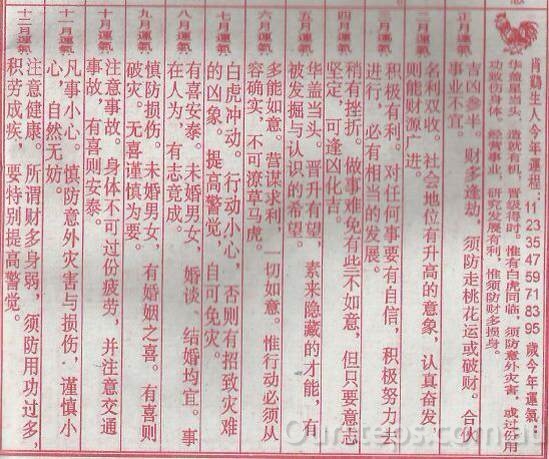 肖鸡生人今年运程：11 23 35 47 59 71 83 95 岁今年運氣：
华盖星当头，造就有机，晋级得时，惟有白虎同临，须防意外灾害，或过份用
功致伤身体。经营事业，研究发展有利，惟须防财多损身。
正月運氣
吉凶参半。财多逢劫，须防走桃花运或破财。合伙
事业不宜。
二月運氣
名利双收。社会地位有升高的意象，认真奋发，
则能财源广进。
三月運氣
积极有利。对任何事要有自信，积极努力去
进行，必有相当的发展。
四月運氣
稍有挫折。做事难免有些不如意，但只要意志
坚定，可逢凶化吉。
五月運氣
华盖当头。晋升有望，素来隐藏的才能，有
被发掘与认识的希望。
六月運氣
多能如意。营谋求利，一切如意。惟行动必须从
容确实，不可潦草马虎。
七月運氣
白虎冲动。行动小心，否则有招致灾难
的凶象。提高警觉，自可免灾。
八月運氣
有喜安泰。未婚男女，婚谈、结婚均宜。事
在人为，有志竟成。
九月運氣
慎防损伤。未婚男女，有婚姻之喜。有喜则
破灾。无喜谨慎为要。
十月運氣
注意事故。身体不可过份疲劳，并注意交通
事故，有喜则安泰。
十一月運氣
凡事小心。慎防意外灾害与损伤，谨慎小
心，自然无妨。
十二月運氣
注意健康。所谓财多身弱，须防用功过多，
积劳成疾，要特别提高警觉。
Oursteps.com.au